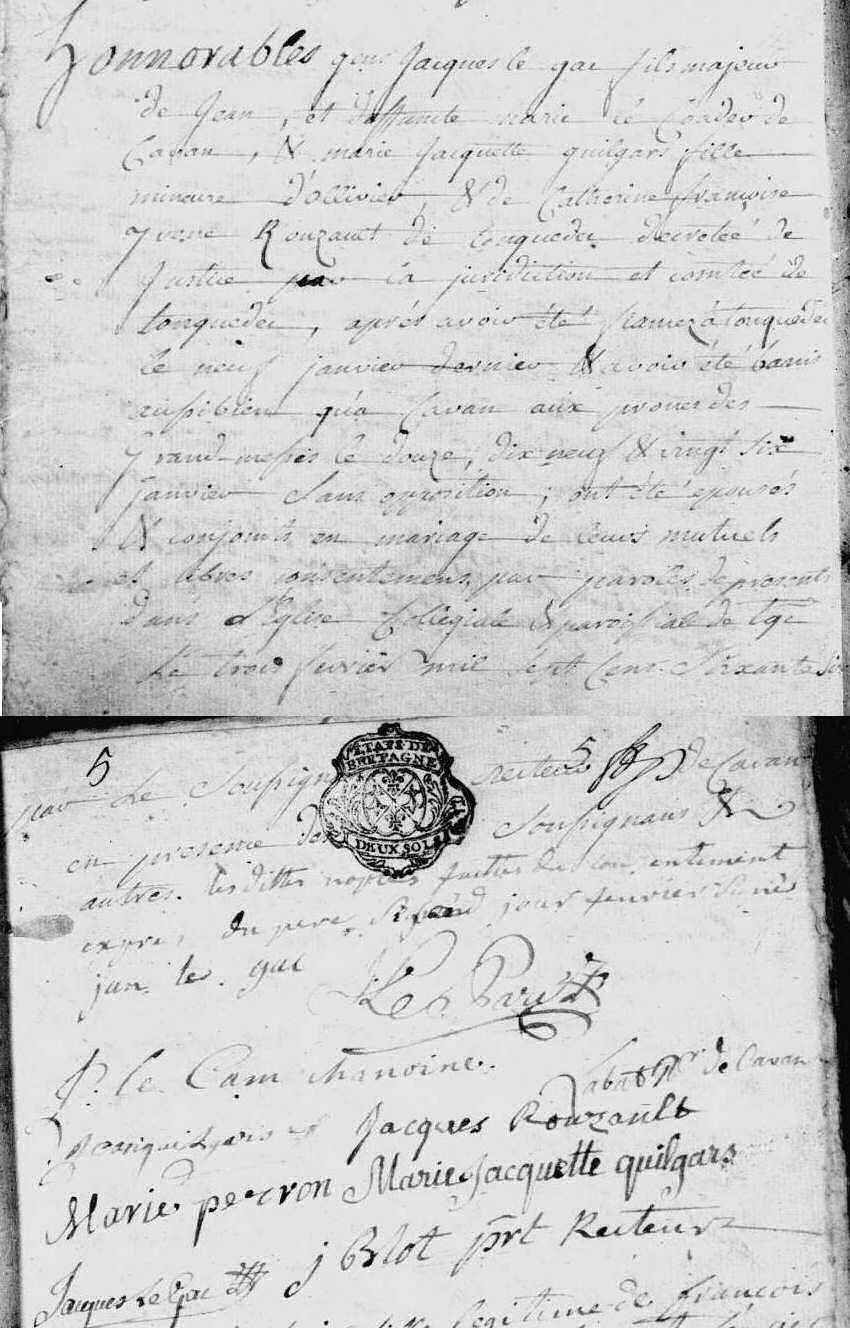 honnorables gens Jacques le gac fils majeur
de Jean, et deffunte marie le Coadou de
Cavan, & marie Jacquette quilgars fille
mineure d'ollivier, & de Catherine françoise
yvone Rouzault de tonquedec decretée de
Justice par la juridiction et comtée de
tonquedec, aprés avoir été fiancez à tonquedec
le neuf janvier dernier & avoir été banis
aussibien qu'a Cavan aux prones des
grand-messes le douze, dix neuf & vingt six
janvier sans opposition; ont été epousés
& conjoints en mariage de leurs mutuels
et libres consentemens par paroles de presents
dans L'Eglise Collegiale & paroissiale de tqc
Le trois fevrier mil sept Cent Soixante six
5 5
par Le Soussigné recteur de Cavan
ETATS DE
BRETAGNE
DEUX SOLS
en presence des soussignans &
autres. lesdittes nopces faittes du consentement
exprés du pere, jour fevrier
jan le gac
P. le Cam chanoine.
Labat de Cavan
Jacques Rouzault
Marie percron Marie Jacquette quilgars
j Blot prt Recteur
Jacques Le Gac
legitime de François